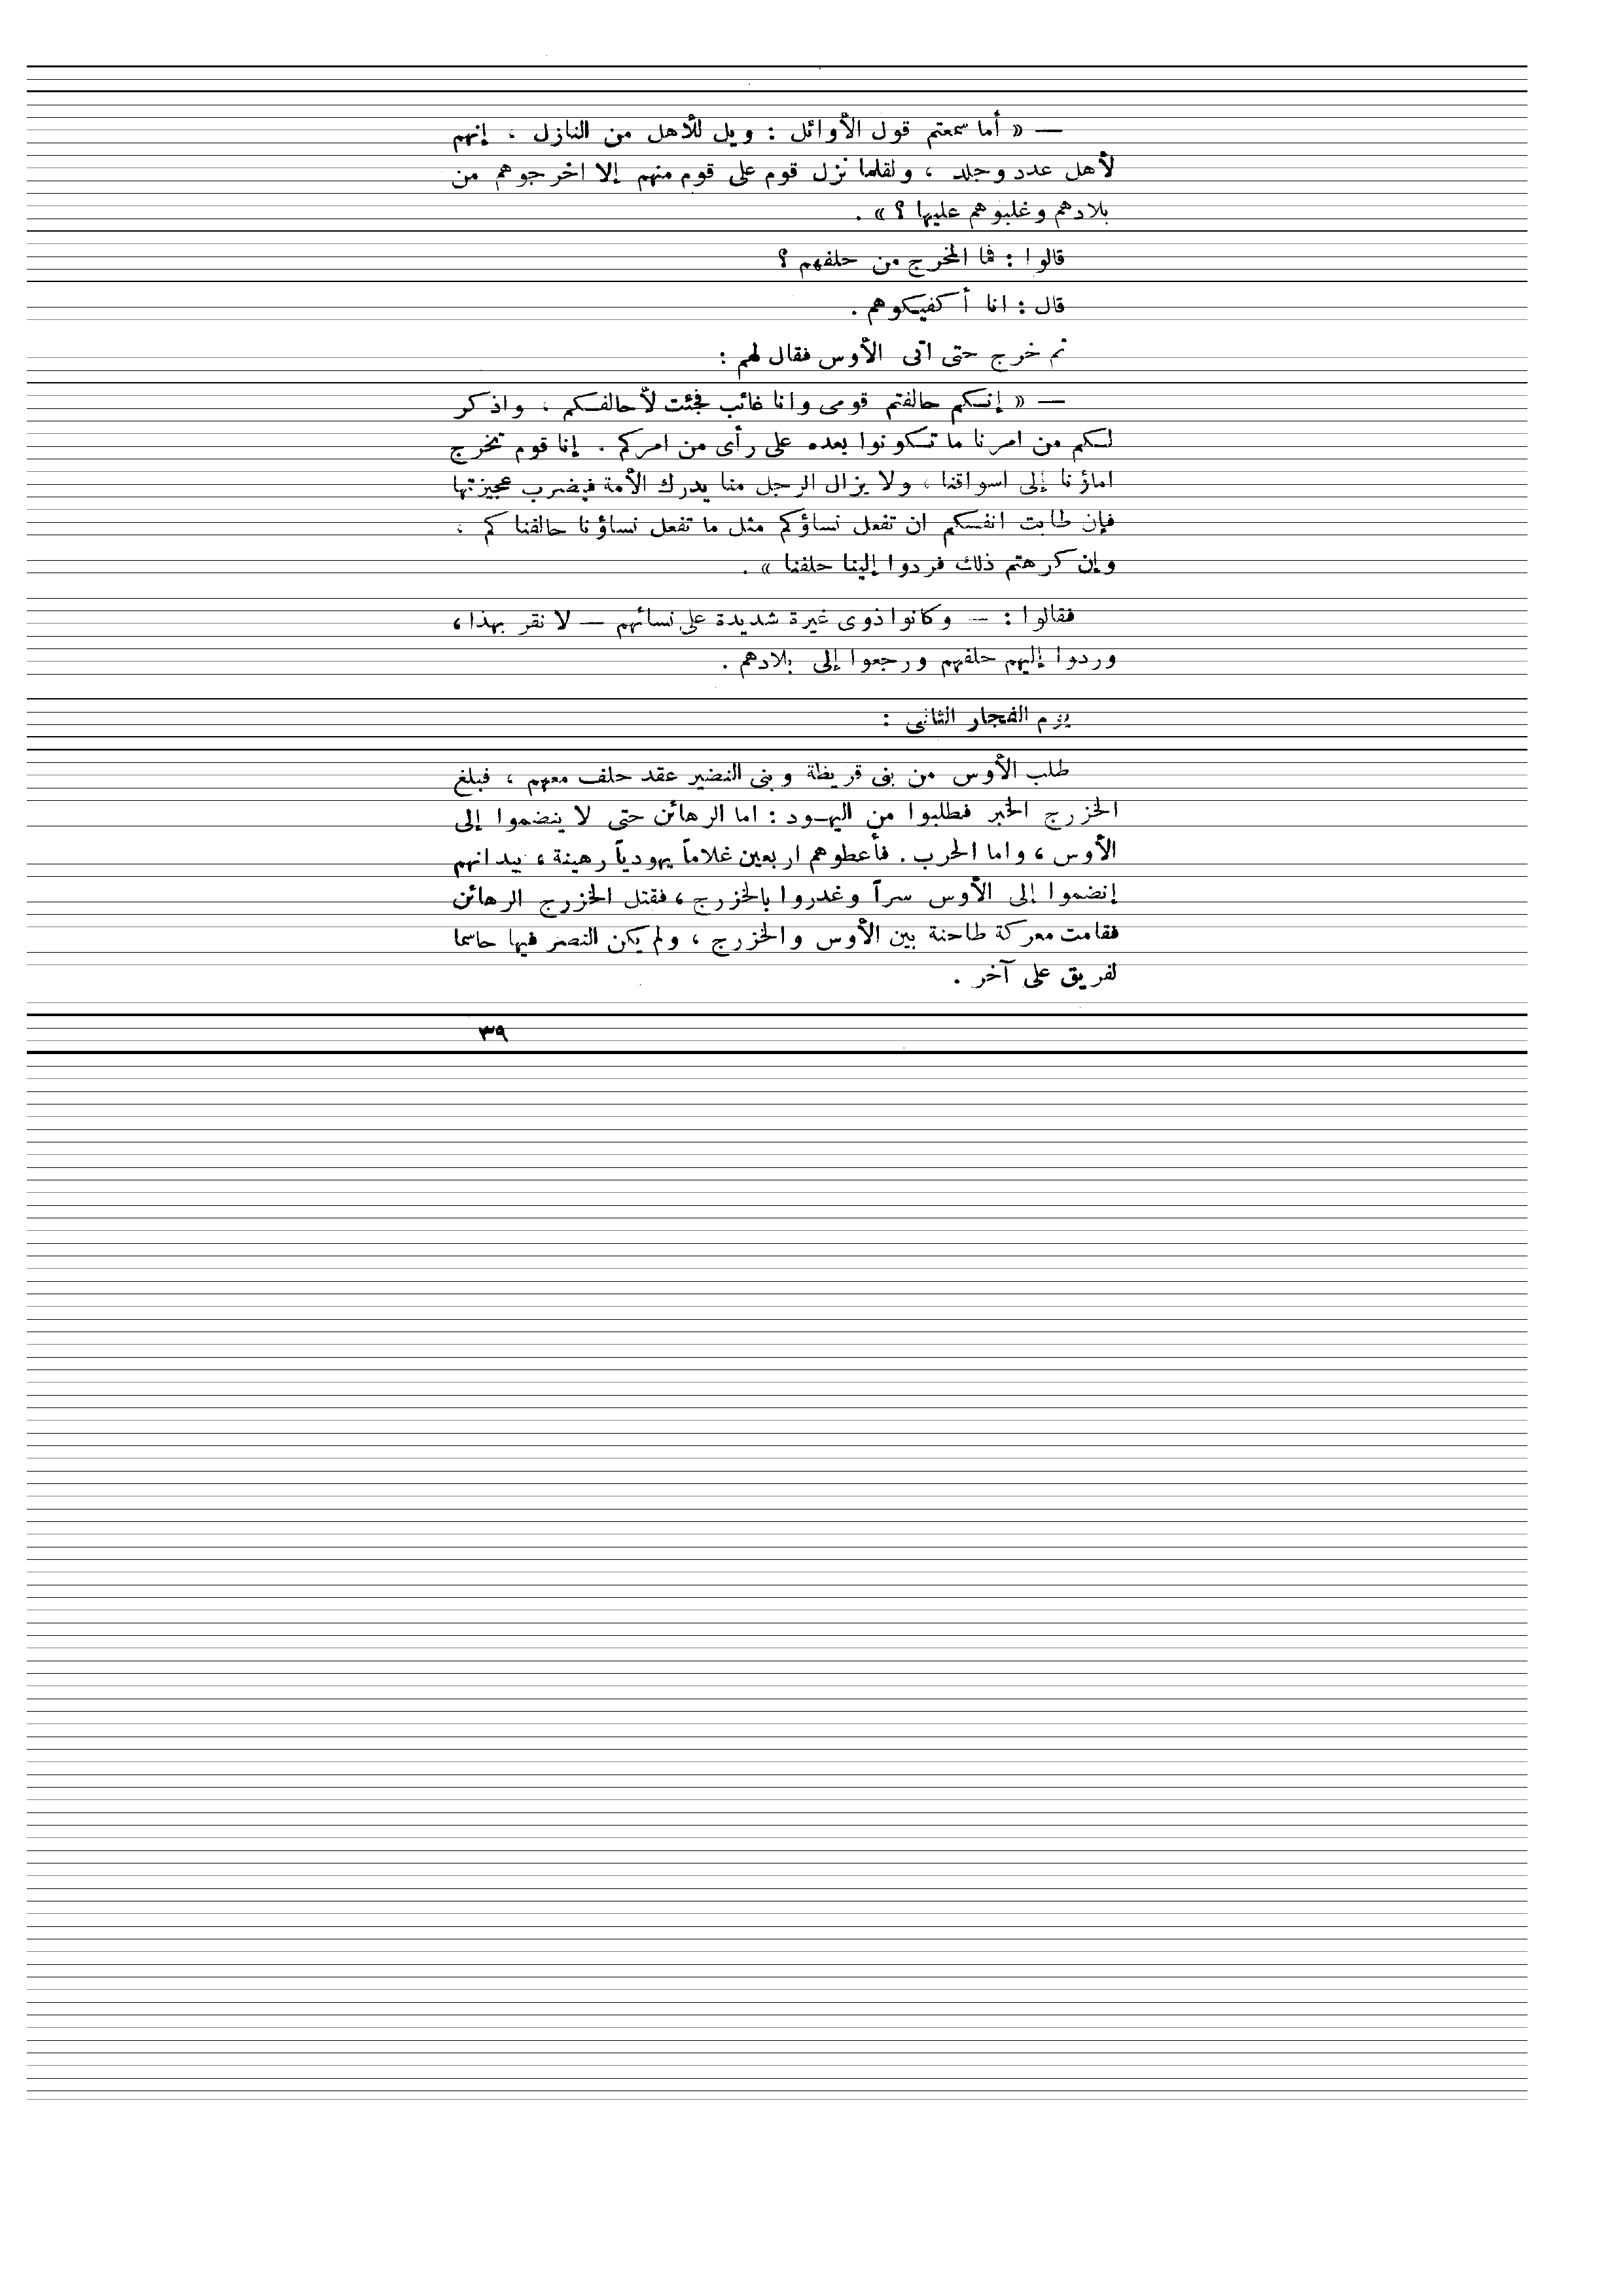 — « أما سمعتم قول الأوائل : ويل للأهل من النازل ، إنهم
لأهل عدد وجلد ، ولقلما نزل قوم على قوم منهم إلا اخرجوهم من
بلادهم وغلبوهم عليها ؟ » .
قالوا : فما المخرج من حلفهم ؟
قال : انا أكفيكوهم .
ثم خرج حتى اتى الأوس فقال لهم :
— « إنكم حالفتم قومى وانا غائب فجئت لأحالفكم ، واذكر
لكم من امرنا ما تكونوا بعده على رأى من امركم . إنا قوم تخرج
اماؤنا إلى اسواقنا ، ولا يزال الرجل منا يدرك الأمة فيضرب عجيزتها
فإن طابت انفسكم ان تفعل نساؤكم مثل ما تفعل نساؤنا حالفناكم ،
وإن كرهتم ذلك فردوا إلينا حلفنا » .
فقالوا : — وكانوا ذوى غيرة شديدة على نسائهم — لا نقر بهذا ،
وردوا إليهم حلفهم ورجعوا إلى بلادهم .
يوم الفجار الثانى :
طلب الأوس من بنى قريظة وبنى النضير عقد حلف معهم ، فبلغ
الخزرج الخبر فطلبوا من اليهود : اما الرهائن حتى لا ينضموا إلى
الأوس ، واما الحرب . فأعطوهم اربعين غلاماً يهودياً رهينة ، بيد انهم
إنضموا إلى الأوس سراً وغدروا بالخزرج ، فقتل الخزرج الرهائن
فقامت معركة طاحنة بين الأوس والخزرج ، ولم يكن النصر فيها حاسما
لفريق على آخر .
٣٩